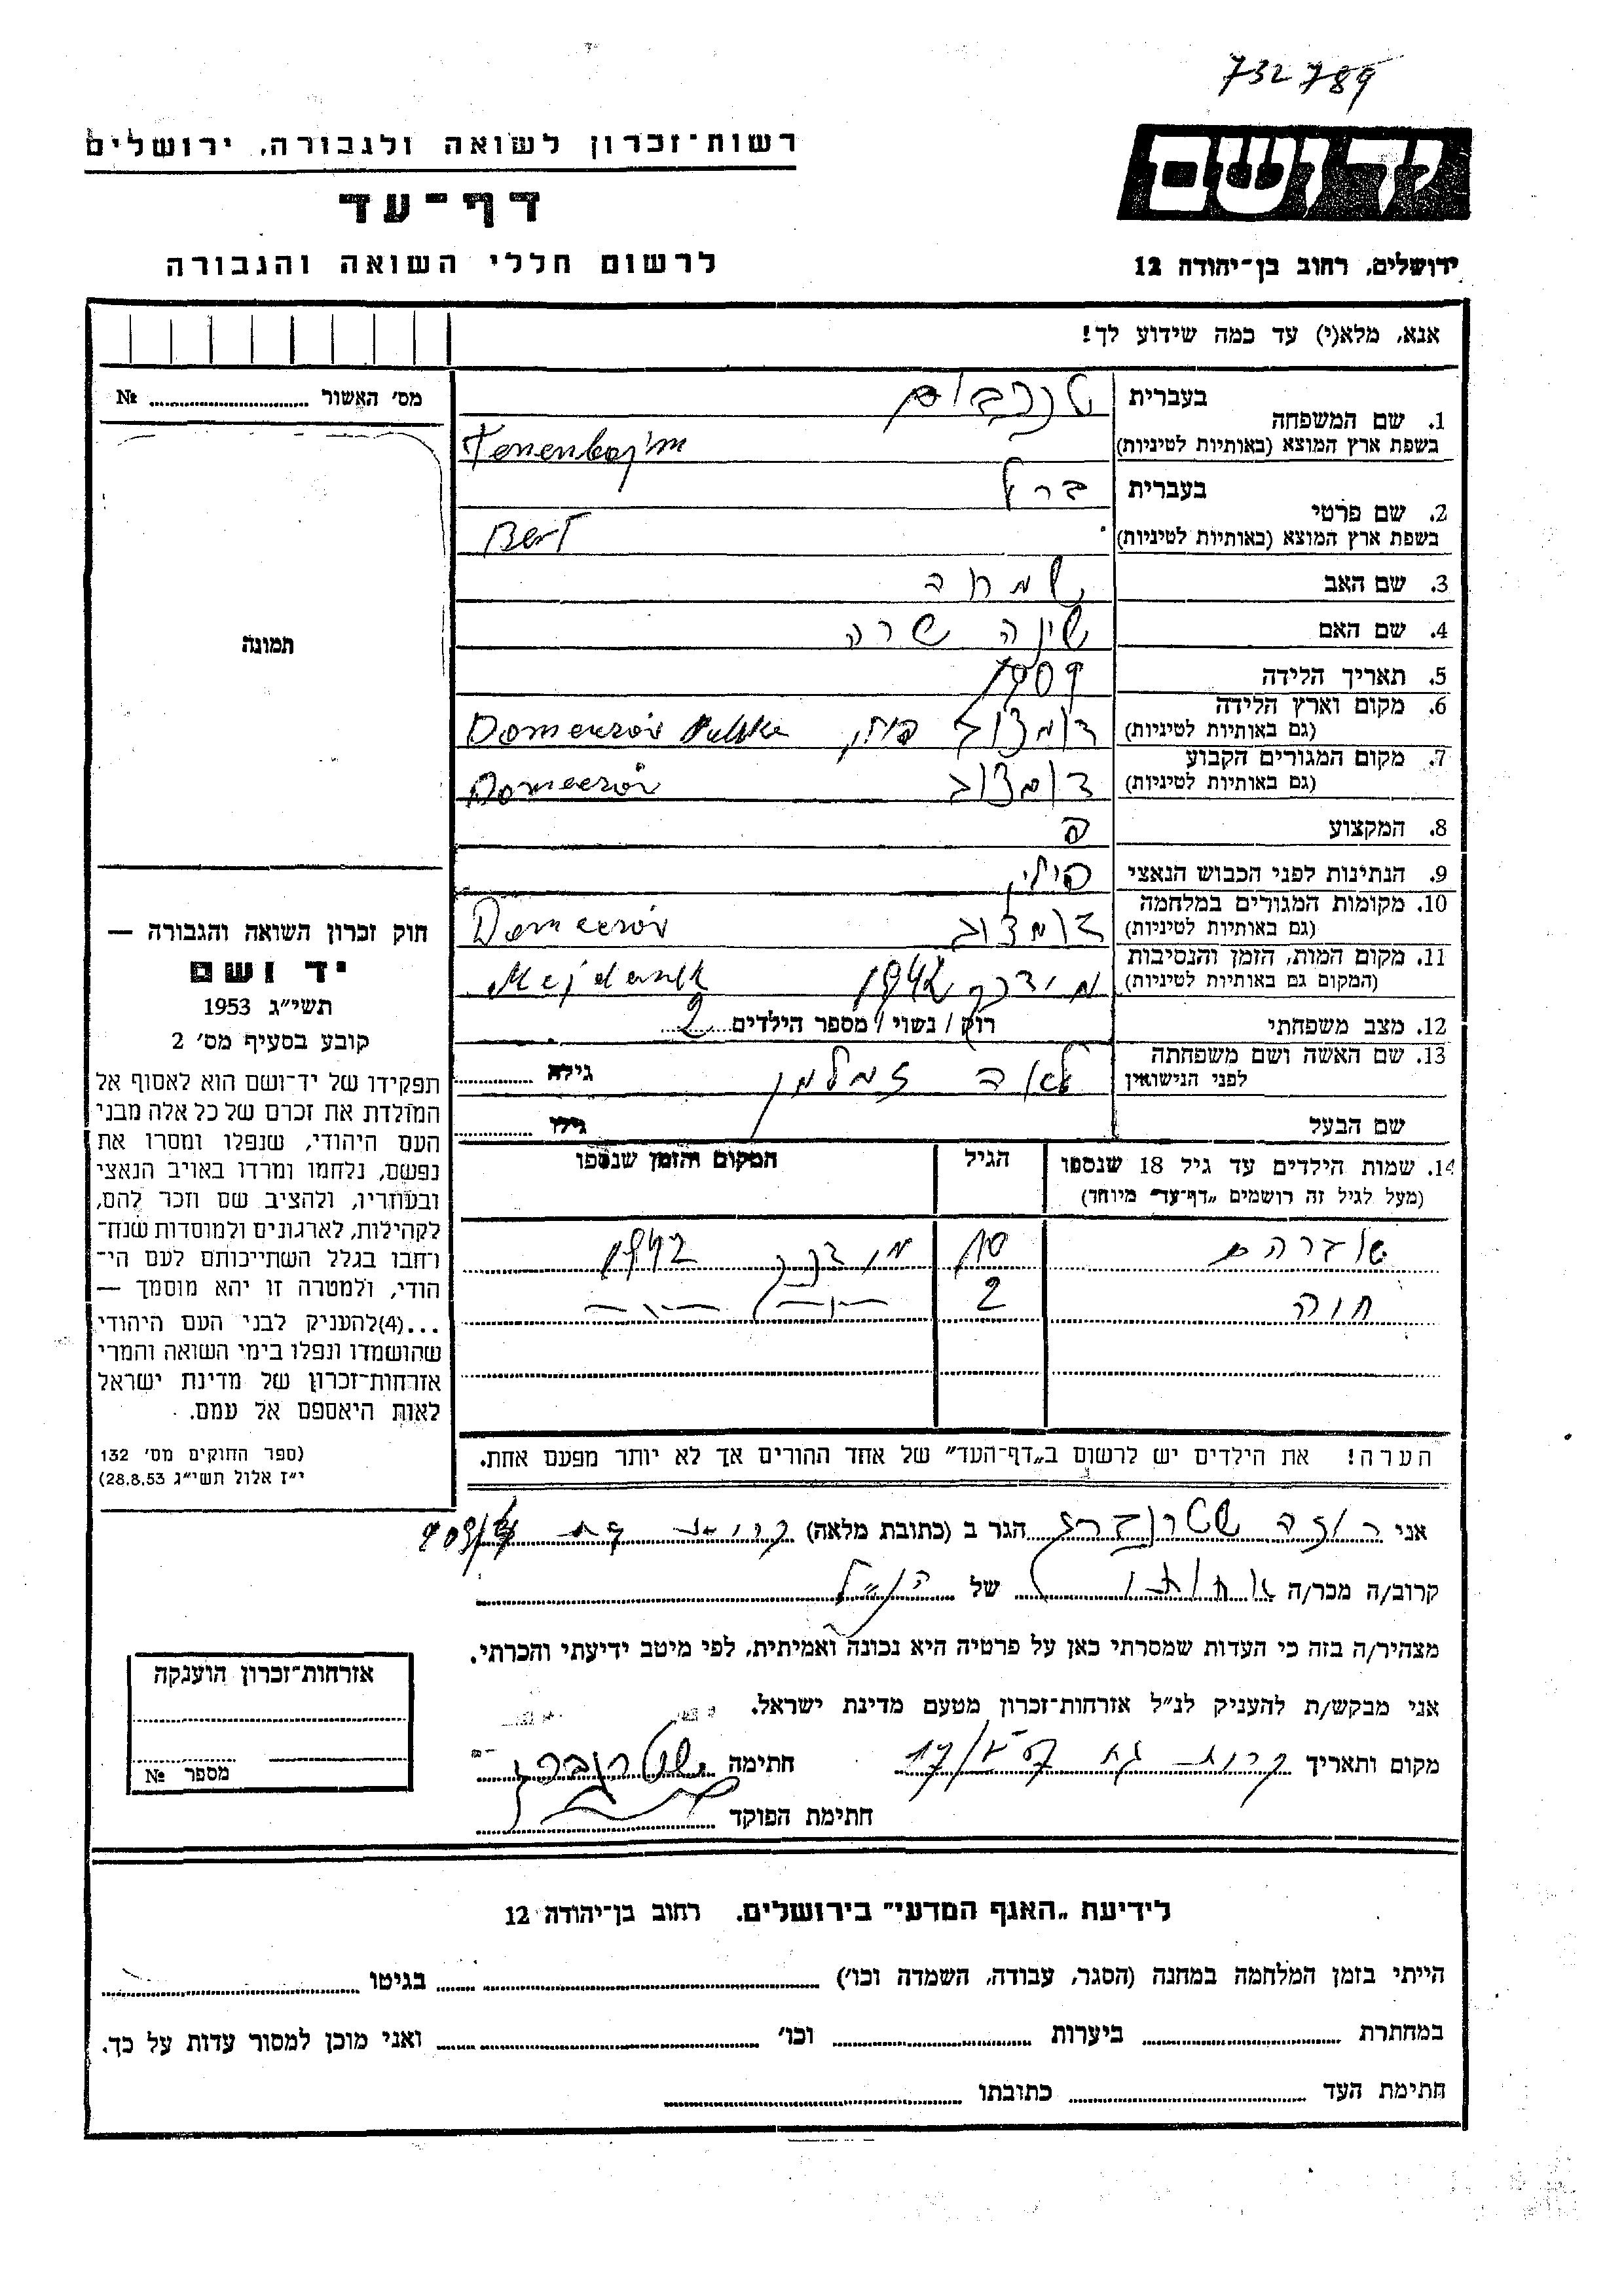 732789
יד ושם
רשות־זכרון לשואה ולגבורה, ירושלים
דף־עד
לרשום חללי השואה והגבורה
ירושלים, רחוב בן־יהודה 12
אנא, מלא(י) עד כמה שידוע לך!
מס׳ האשור № 
1. שם המשפחה
בעברית טננבוים
בשפת ארץ המוצא (באותיות לטיניות) Tenenbojm
2. שם פרטי
בעברית ברל
בשפת ארץ המוצא (באותיות לטיניות) Berl
3. שם האב שמחה
4. שם האם שינה שרה
5. תאריך הלידה 1909
6. מקום וארץ הלידה
(גם באותיות לטיניות) פולין
7. מקום המגורים הקבוע
(גם באותיות לטיניות)
8. המקצוע
9. הנתינות לפני הכבוש הנאצי פולין
10. מקומות המגורים במלחמה
(גם באותיות לטיניות)
11. מקום המות, הזמן והנסיבות
(המקום גם באותיות לטיניות) 1942 Majdanek
12. מצב משפחתי רוק / נשוי / מספר הילדים 2
13. שם האשה ושם משפחתה
לפני הנישואין לאה גילה
שם הבעל גילו
14. שמות הילדים עד גיל 18 שנספו הגיל המקום והזמן שנספו
(מעל לגיל זה רושמים „דף־עד״ מיוחד)
10 1942
חוה 2 —"— —"—
הערה! את הילדים יש לרשום ב„דף־העד״ של אחד ההורים אך לא יותר מפעם אחת.
תמונה
חוק זכרון השואה והגבורה —
יד ושם
תשי״ג 1953
קובע בסעיף מס׳ 2
תפקידו של יד־ושם הוא לאסוף אל
המולדת את זכרם של כל אלה מבני
העם היהודי, שנפלו ומסרו את
נפשם, נלחמו ומרדו באויב הנאצי
ובעוזריו, ולהציב שם וזכר להם,
לקהילות, לארגונים ולמוסדות שנח־
רחבו בגלל השתייכותם לעם הי־
הודי, ולמטרה זו יהא מוסמך —
...(4)להעניק לבני העם היהודי
שהושמדו ונפלו בימי השואה והמרי
אזרחות־זכרון של מדינת ישראל
לאות היאספם אל עמם.
(ספר החוקים מס׳ 132
י״ז אלול תשי״ג 28.8.53)
אני רוזה שטרנברג הגר ב (כתובת מלאה) קרית גת
קרוב/ה מכר/ה אחותו של הנ״ל
מצהיר/ה בזה כי העדות שמסרתי כאן על פרטיה היא נכונה ואמיתית, לפי מיטב ידיעתי והכרתי.
אני מבקש/ת להעניק לנ״ל אזרחות־זכרון מטעם מדינת ישראל.
מקום ותאריך קרית גת חתימה שטרנברג
חתימת הפוקד
אזרחות־זכרון הוענקה
מספר №
לידיעת „האגף המדעי״ בירושלים. רחוב בן־יהודה 12
הייתי בזמן המלחמה במחנה (הסגר, עבודה, השמדה וכו׳) בגיטו
במחתרת ביערות וכו׳ ואני מוכן למסור עדות על כך.
חתימת העד כתובתו